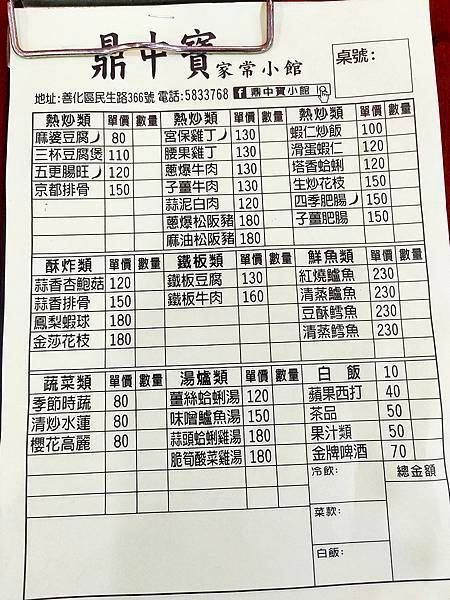 鼎中寶 家常小館
桌號:
地址:善化區民生路366號 電話:5833768 f 鼎中寶小館
熱炒類 單價 數量 熱炒類 單價 數量 熱炒類 單價 數量
麻婆豆腐 80 宮保雞丁 130 蝦仁炒飯 100
三杯豆腐煲 110 腰果雞丁 130 滑蛋蝦仁 120
五更腸旺 120 蔥爆牛肉 130 塔香蛤蜊 120
京都排骨 150 子薑牛肉 130 生炒花枝 150
蒜泥白肉 120 四季肥腸 150
蔥爆松阪豬 180 子薑肥腸 150
麻油松阪豬 180
酥炸類 單價 數量 鐵板類 單價 數量 鮮魚類 單價 數量
蒜香杏鮑菇 120 鐵板豆腐 130 紅燒鱸魚 230
蒜香排骨 150 鐵板牛肉 160 清蒸鱸魚 230
鳳梨蝦球 180 豆酥鱈魚 230
金莎花枝 180 清蒸鱈魚 230
蔬菜類 單價 數量 湯爐類 單價 數量 白飯 10
季節時蔬 80 薑絲蛤蜊湯 120 蘋果西打 40
清炒水蓮 80 味噌鱸魚湯 150 茶品 50
櫻花高麗 80 蒜頭蛤蜊雞湯 180 果汁類 50
脆筍酸菜雞湯 180 金牌啤酒 70
冷飲: 總金額
菜款:
白飯: